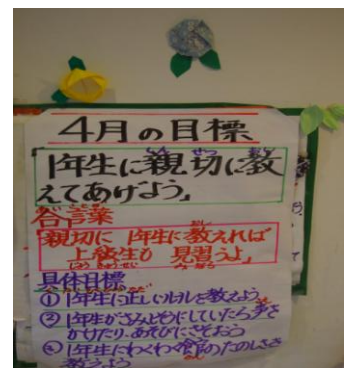 4月の目標
1年生に親切に教
えてあげよう。
合言葉
「親切に 1年生に教えれば
上級生も 見習うよ」
具体目標
①1年生に正しいルールを教えよう
②1年生がさみしそうにしていたら声を
かけたり、あそびにさそおう
③1年生にわくわく館のたのしさを
教えよう